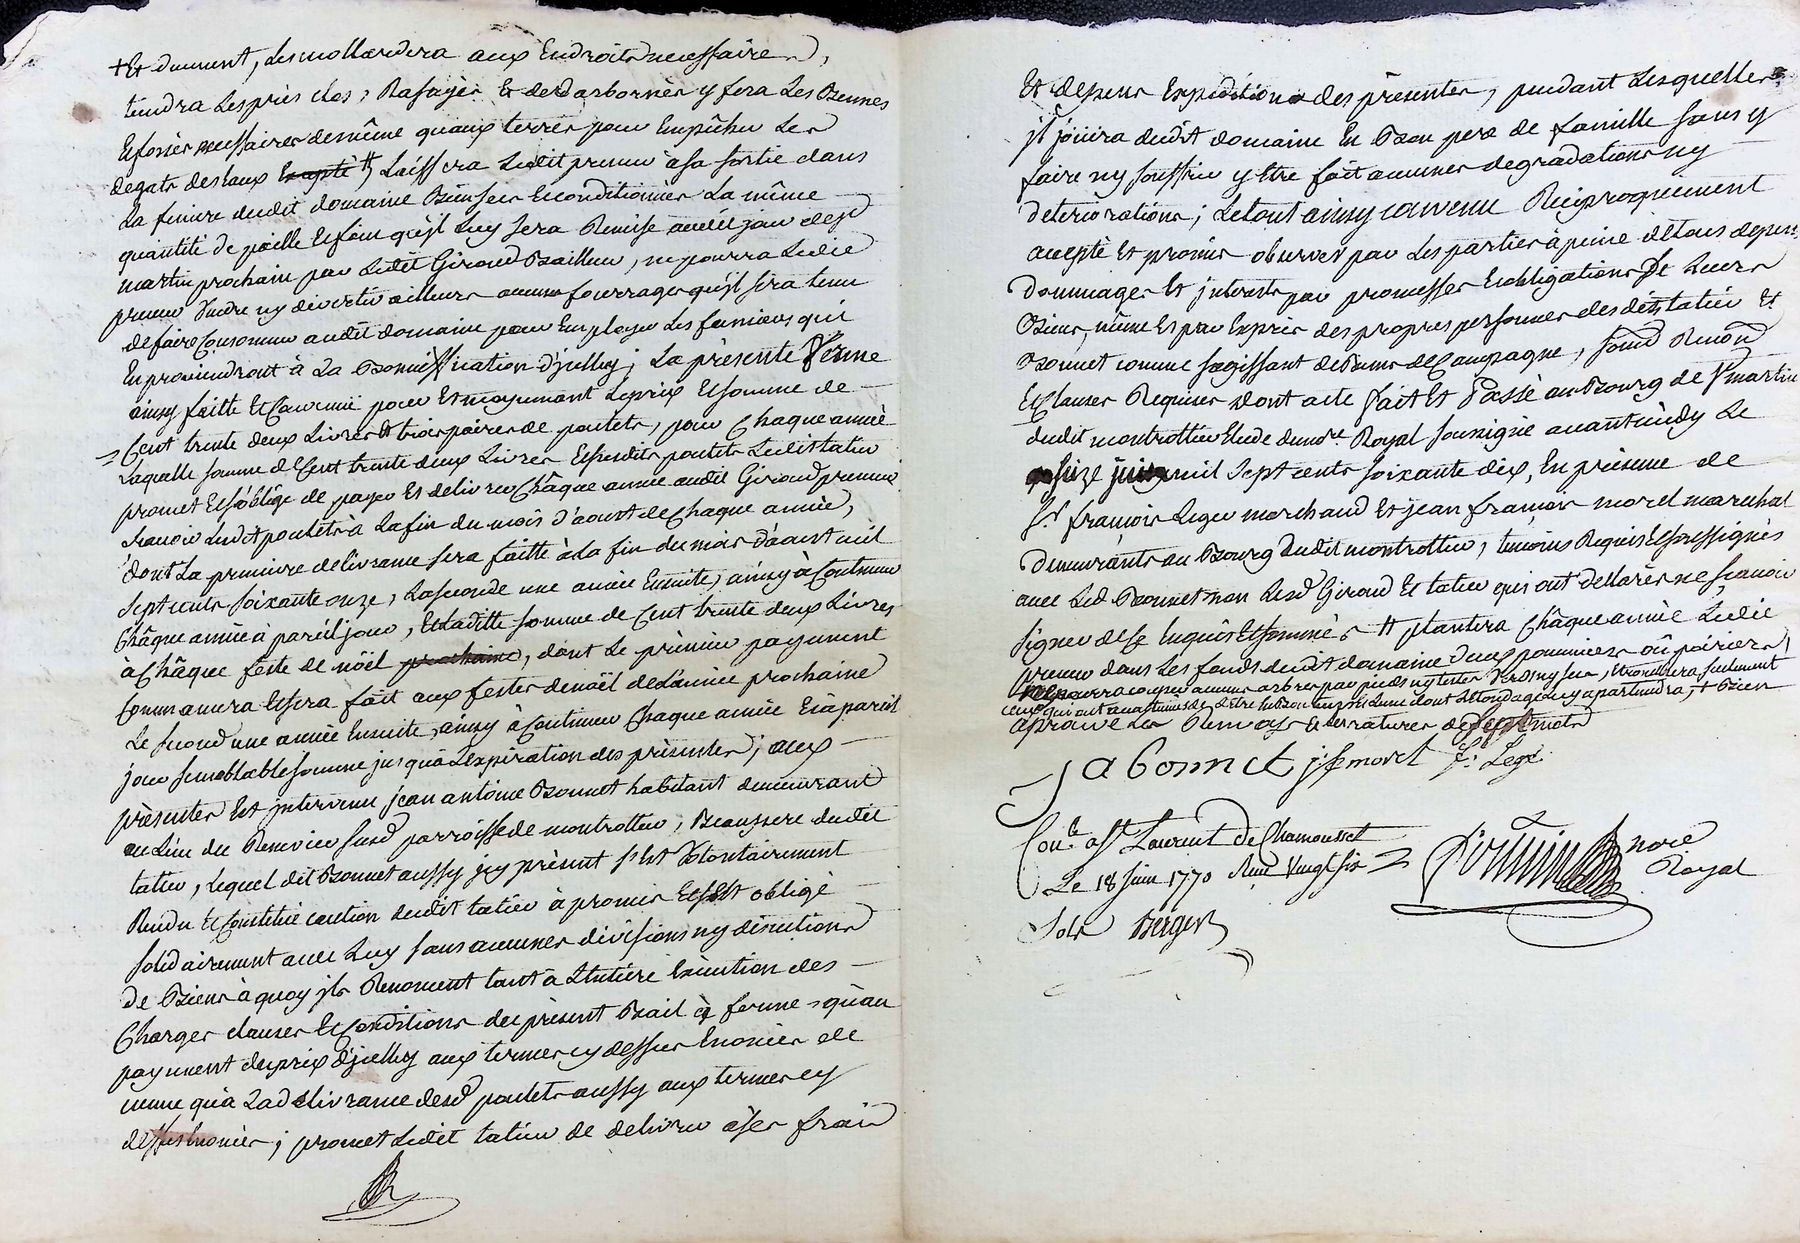 + Et duement, Les mollardera aux Endroits necessaires,
tiendra Les près clos, Rasayés Et desdarbonnés y fera Les Biennes
Et fossés necessaires de même quaux terres pour Empêcher Les
degats des Eaux Excepté # Laissera Ledit preneur à sa sortie dans
La feniere dudit domaine Bien secs Et conditionnés La même
quantité de paille Et foin qu'jl Luy sera Remise audit jour de st
martin prochain par Ledit Giroud Bailleur, ne pourra Ledit
preneur Vendre ny divertir ailleurs aucuns fourrages qu'jl sera tenu
de faire Consommer audit domaine pour Employer Les fumiers qui
En proviendront à La Bonniffication d'jcelluy; La présente ferme
ainsy faitte Et Convenüe pour Et moyennant Le prix Et somme de
Cent trente deux Livres Et trois paires de poulets, pour Chaque année
Laquelle somme de Cent trente deux Livres Et susdits poulets Ledit tatieu
promet Et s'oblige de payer Et delivrer Châque année audit Giroud preneur
sçavoir Lesdit poulets à La fin du mois d'aoust de Chaque année,
dont La premiere delivrance sera faitte à La fin du mois d'aoust mil
sept cents soixante onze, La seconde une année Ensuite, ainsy à Continuer
Châque année à pareil jour, Et Laditte somme de Cent trente deux Livres
à Châque feste de nöel prochaine, dont Le prémier payement
Commancera Et sera fait aux festes de noël de L'année prochaine
Le second une année Ensuite, ainsy à Continuer Chaque année Et à pareil
jour semblable somme jusquà L'expiration des présentes; aux
présentes Est jntervenu jean antoine Bonnet habitant demeurant
au Lieu du Renevier susd parroisse de montrottier, Beaupere dudit
tatieu, Lequel dit Bonnet aussy jcy présent s'Est Volontairement
Rendu Et Constitué caution dudit tatieu à promis Et s'Est obligé
solidairement avec Luy sans aucunes divisions ny discutions
de Biens à quoy jls Renoncent tant à L'entiére Exécution des
Charges clauses Et Conditions du présent Bail à ferme qu'au
payement du prix d'jcelluy aux termes cy dessus Enoncés de
meme qu'à La delivrance desd poulets aussy aux termes cy
dessus Enoncés; promet Ledit tatieu de delivrer à ses frais
Et depens Expeditions des présentes, pendant Lesquelles
jl jouira dudit domaine En Bon pere de famille sans y
faire ny souffrir y Etre fait aucunes degradations ny
deteriorations; Le tout ainsy convenu Réciproquement
accepté Et promis observer par Les parties à peine de tous depens
dommages Et jnterests par promesses Et obligations de Leurs
Biens, même Et par Exprès des propres personnes desdits tatieu Et
Bonnet comme s'agissant de Biens de Campagne, soumd Renond
Et Clauses Requises dont acte fait Et Passé au Bourg de st martin
dudit montrottier Etude du nore Royal soussigné avant midy Le
seize juin mil sept cents soixante dix, En présence de
sr françois Leger marchand Et jean françois morel marechal
demeurants au Bourg dudit montrottier, temoins Requis Et soussignés
avec Led Bonnet non Lesd Giroud Et tatieu qui ont dellarés ne sçavoir
signer de ce Enquis Et sommés # plantera Châque année Ledit
preneur dans Les fonds dudit domaine deux pommiers oû poiriers,
ne pourra couper aucuns arbres par pieds ny tester Verds ny secs, Et Emondera seulement
ceux qui ont accoutumés de L'Etre En Bon temps Et Lune dont L'Emondage Luy apartiendra, + Bien
aprouvé Les Renvois Et Les ratures de sept mots
J A Bonnet jf morel fs Leger
Con.lé a St Laurent de Chamousset
Le 18 juin 1770 Reçu Vingt six s
nore
Royal
Sols Berger